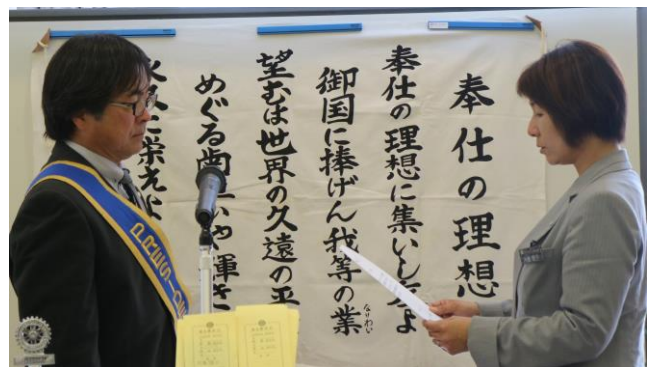 奉仕の理想
奉仕の理想に集いし友よ
御国に捧げん我等の業
なりわい
望むは世界の久遠の平
めぐる歯車いや輝き
久に栄えよ
PRESID